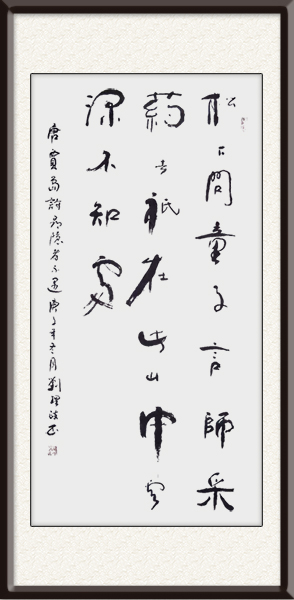 松下問童子言師采
葯去祇在此山中雲
深不知處
唐賈島詩尋隱者不遇庚子年冬月劉理